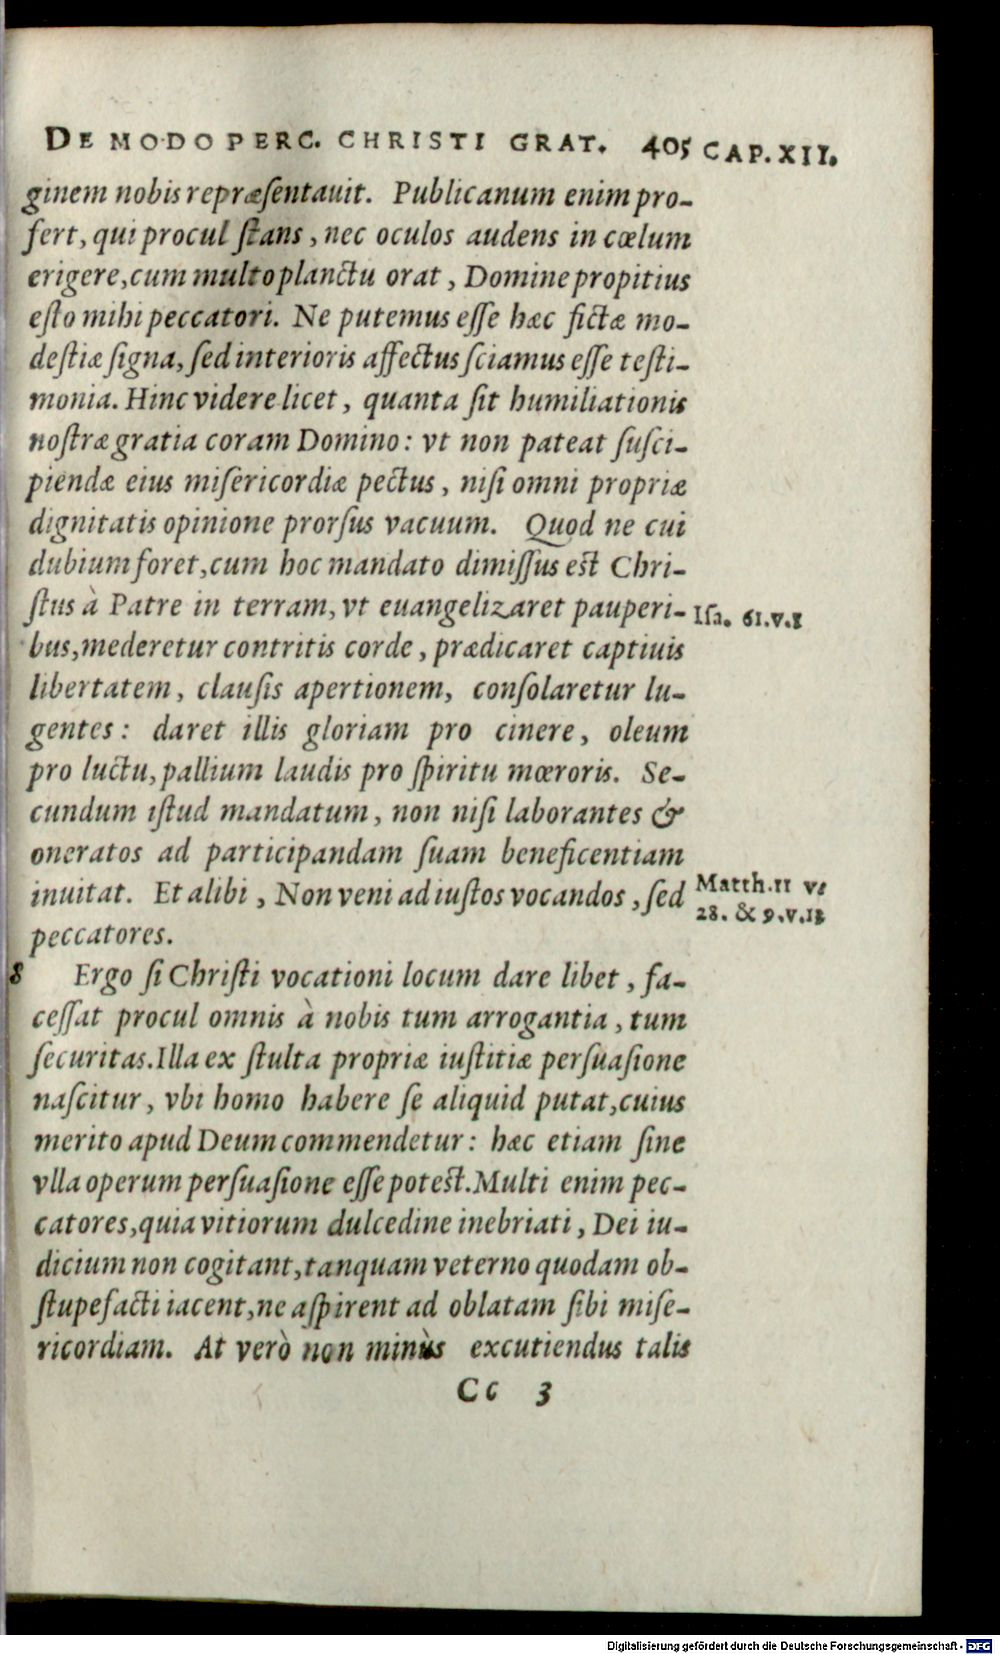 DE MODO PERC. CHRISTI GRAT. 405 CAP. XII.
ginem nobis repræſentauit. Publicanum enim pro-
fert, qui procul ſtans, nec oculos audens in cœlum
erigere, cum multo planctu orat, Domine propitius
eſto mihi peccatori. Ne putemus eſſe hæc fictæ mo-
deſtiæ ſigna, ſed interioris affectus ſciamus eſſe teſti-
monia. Hinc videre licet, quanta ſit humiliationis
noſtræ gratia coram Domino: vt non pateat ſuſci-
piendæ eius miſericordiæ pectus, niſi omni propriæ
dignitatis opinione prorſus vacuum. Quod ne cui
dubium foret, cum hoc mandato dimiſſus eſt Chri-
ſtus à Patre in terram, vt euangelizaret pauperi- Iſa. 61.v.1
bus, mederetur contritis corde, prædicaret captiuis
libertatem, clauſis apertionem, conſolaretur lu-
gentes: daret illis gloriam pro cinere, oleum
pro luctu, pallium laudis pro ſpiritu mœroris. Se-
cundum iſtud mandatum, non niſi laborantes &
oneratos ad participandam ſuam beneficentiam
inuitat. Et alibi, Non veni ad iuſtos vocandos, ſed Matth. 11 v.
peccatores. 28. & 9.v.13
8 Ergo ſi Chriſti vocationi locum dare libet, fa-
ceſſat procul omnis à nobis tum arrogantia, tum
ſecuritas. Illa ex ſtulta propriæ iuſtitiæ perſuaſione
naſcitur, vbi homo habere ſe aliquid putat, cuius
merito apud Deum commendetur: hæc etiam ſine
vlla operum perſuaſione eſſe poteſt. Multi enim pec-
catores, quia vitiorum dulcedine inebriati, Dei iu-
dicium non cogitant, tanquam veterno quodam ob-
ſtupefacti iacent, ne aſpirent ad oblatam ſibi miſe-
ricordiam. At verò non minùs excutiendus talis
Cc 3
Digitalisierung gefördert durch die Deutsche Forschungsgemeinschaft - DFG